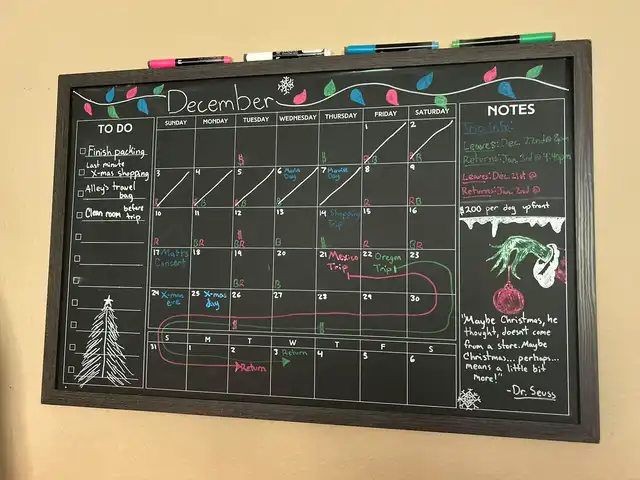 December
TO DO
Finish packing
Last minute
X-mas shopping
Alley's travel
bag
Clean room before
trip
SUNDAY MONDAY TUESDAY WEDNESDAY THURSDAY FRIDAY SATURDAY
1 2
3 4 5 6 7 8 9
10 11 12 13 14 15 16
Shopping
Trip
17 18 19 20 21 22 23
Matt's
Concert
Mexico
Trip
Oregon
Trip
24 25 26 27 28 29 30
X-mas
eve
X-mas
day
S M T W T F S
31 1 2 3 4 5 6
Return
Return
NOTES
Trip Info:
Leaves: Dec. 22nd @
Returns: Jan. 3rd @
Leaves: Dec 21st @
Returns: Jan. 2nd @
$200 per day upfront
"Maybe Christmas, he
thought, doesn't come
from a store. Maybe
Christmas... perhaps...
means a little bit
more!"
-Dr. Seuss